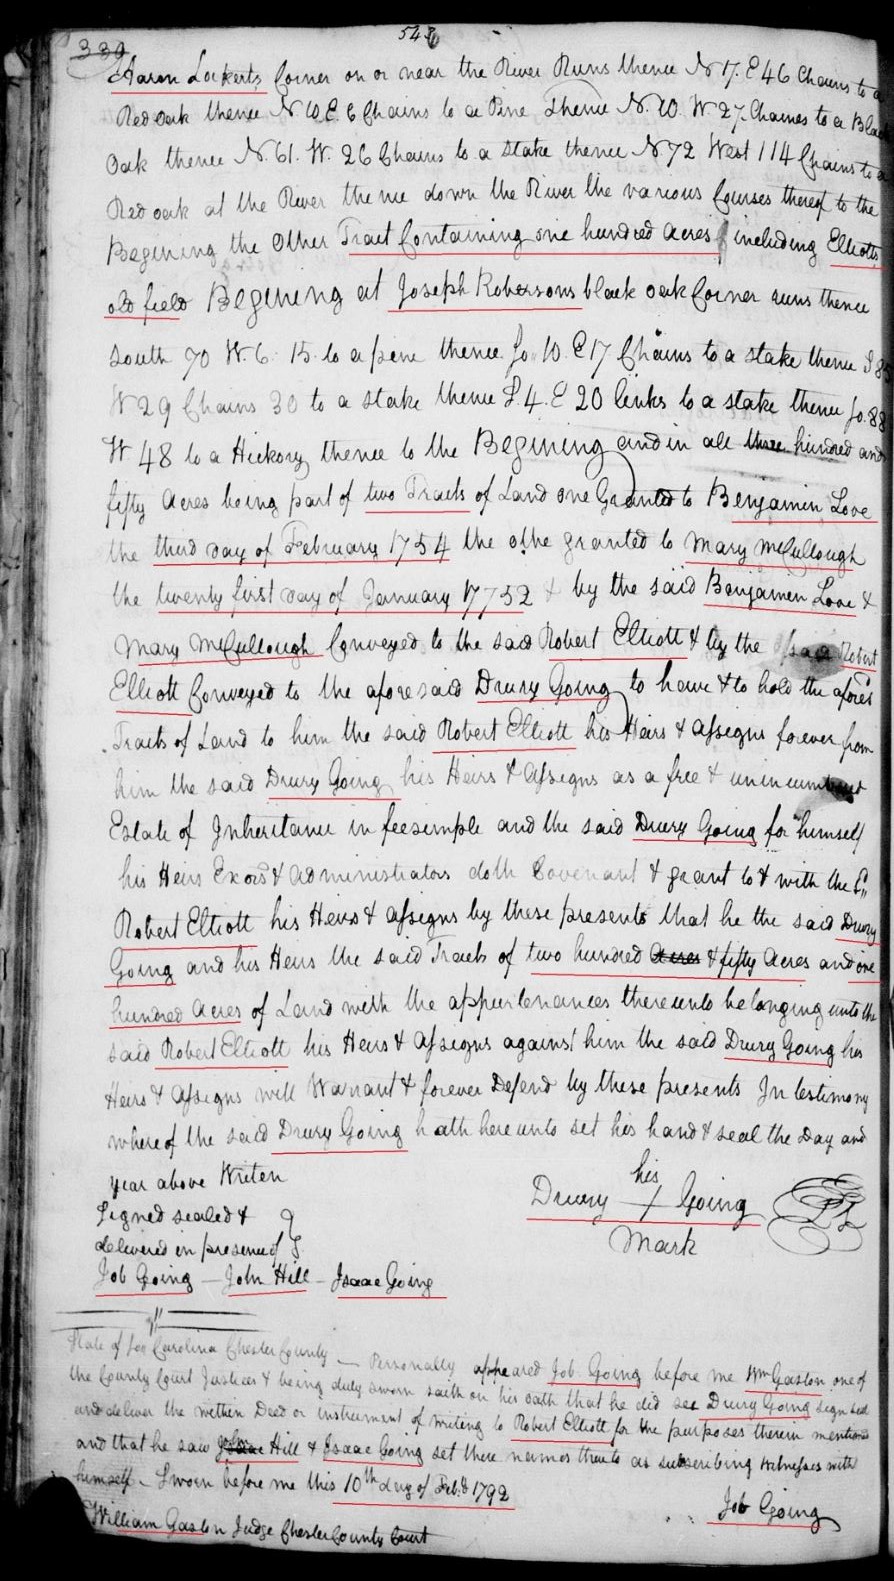 339
543
Aaron Lockerts Corner on or near the River Runs thence N 17. E 46 Chains to a
Red oak thence N 10. E 6 Chains to a Pine Thence N. 10. W. 27. Chaines to a Blac
Oak thence N. 61. W. 26 Chains to a stake thence N 72 West 114 Chains to a
Red oak at the River thence down the River the various Courses thereof to the
Begining the Other Tract Containing one hundred acres including Elliotts
old field Begining at Joseph Robersons black oak Corner runs thence
South 70 W. 6. 15. to a pine thence So. 10. E 17 Chains to a stake thence S 8
W 29 Chains 30 to a stake thence S. 4. E 20 links to a stake thence So. 88
W. 48 to a Hickory thence to the Begining and in all three hundred and
fifty Acres being part of two Tracts of Land one Granted to Benjamin Love
the third day of February 1754 the othe granted to Mary McCullough
the twenty first day of January 17752 & by the said Benjamin Love &
Mary McCullough Conveyed to the said Robert Elliott & by the said Robert
Elliott Conveyed to the aforesaid Drury Going to have & to hold the afores
Tracts of Land to him the said Robert Elliott his Heirs & assigns forever from
him the said Drury Going his Heirs & assigns as a free & unincumb
Estate of Inheritance in feesimple and the said Drury Going for himself
his Heirs Exors & administrators doth Covenant & grant to & with the Sd
Robert Elliott his Heirs & assigns by these presents that he the said Drury
Going and his Heirs the said Tracts of two hundred Acres & fifty Acres and one
hundred Acres of Land with the appurtenances thereunto belonging unto the
said Robert Elliott his Heirs & assigns against him the said Drury Going his
Heirs & assigns will Warrant & forever Defend by these presents In testimony
whereof the said Drury Going hath hereunto set his hand & seal the Day and
year above Writen
Signed sealed &
delivered in presence of
Job Going - John Hill - Isaac Going
his
Drury / Going LS
Mark
State of So Carolina Chester County - Personally appeared Job Going before me Wm Gaston one of
the County Court Justices & being duly sworn saith on his oath that he did see Drury Going sign seal
and deliver the within Deed or instrument of writing to Robert Elliott for the purposes therein mentiond
and that he saw John Hill & Isaac Going set there names thereto as subscribing witnesses with
himself - Sworn before me this 10th day of Feb. 1792
Job Going
William Gaston Judge Chester County Court